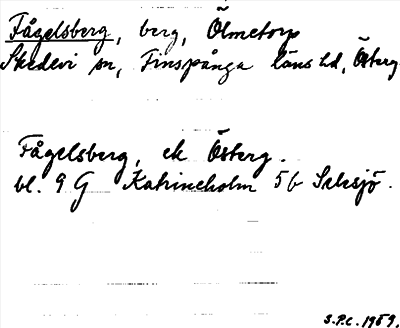 Fågelsberg, berg, Ölmetorp
Skedevi sn, Finspånga läns hd, Österg
Fågelsberg, ek Österg.
bl. 9 G Katrineholm 5 b
S.P.C. 1959.